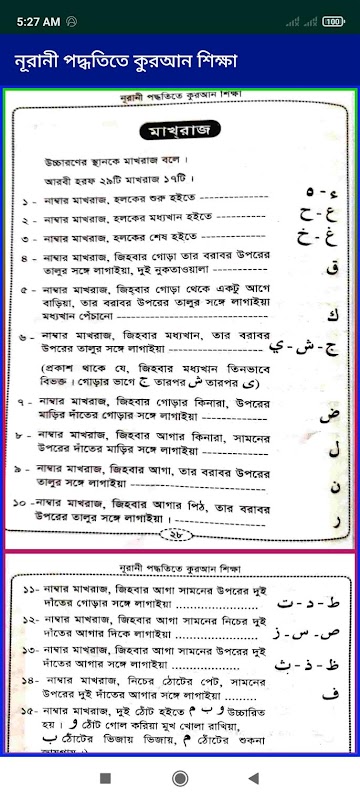 5:27 AM
100
নূরানী পদ্ধতিতে কুরআন শিক্ষা
নূরানী পদ্ধতিতে কুরআন শিক্ষা
মাখ্‌রাজ
উচ্চারণের স্থানকে মাখরাজ বলে ।
আরবী হরফ ২৯টি মাখরাজ ১৭টি ।
১ - নাম্বার মাখরাজ, হলকের শুরু হইতে -------------- ء - ه
২ - নাম্বার মাখরাজ, হলকের মধ্যখান হইতে ----------- ع - ح
৩ - নাম্বার মাখরাজ, হলকের শেষ হইতে -------------- غ - خ
৪ - নাম্বার মাখরাজ, জিহবার গোড়া তার বরাবর উপরের
তালুর সঙ্গে লাগাইয়া, দুই নুকতাওয়ালা ------------- ق
৫ - নাম্বার মাখরাজ, জিহবার গোড়া থেকে একটু আগে
বাড়িয়া, তার বরাবর উপরের তালুর সঙ্গে লাগাইয়া
মধ্যখান পেঁচানো ------------------------- ك
৬ - নাম্বার মাখরাজ, জিহবার মধ্যখান, তার বরাবর
উপরের তালুর সঙ্গে লাগাইয়া ---------------- ج - ش - ي
(প্রকাশ থাকে যে, জিহবার মধ্যখান তিনভাবে
বিভক্ত । গোড়ার ভাগে ج তারপর ش তারপর ي)
৭ - নাম্বার মাখরাজ, জিহবার গোড়ার কিনারা, উপরের
মাড়ির দাঁতের গোড়ার সঙ্গে লাগাইয়া ------------- ض
৮ - নাম্বার মাখরাজ, জিহবার আগার কিনারা, সামনের
উপরের দাঁতের মাড়ির সঙ্গে লাগাইয়া ------------- ل
৯ - নাম্বার মাখরাজ, জিহবার আগা, তার বরাবর উপরের
তালুর সঙ্গে লাগাইয়া ---------------------- ن
১০ -নাম্বার মাখরাজ, জিহবার আগার পিঠ, তার বরাবর
উপরের তালুর সঙ্গে লাগাইয়া । ---------------- ر
২৮
নূরানী পদ্ধতিতে কুরআন শিক্ষা
১১- নাম্বার মাখরাজ, জিহবার আগা সামনের উপরের দুই
দাঁতের গোড়ার সঙ্গে লাগাইয়া .................... ط - د - ت
১২- নাম্বার মাখরাজ, জিহবার আগা সামনের নিচের দুই
দাঁতের আগার দিকে লাগাইয়া .................... ص - س - ز
১৩- নাম্বার মাখরাজ, জিহবার আগা সামনের উপরের দুই
দাঁতের আগার সঙ্গে লাগাইয়া .................... ظ - ذ - ث
১৪- নাম্বার মাখরাজ, নিচের ঠোটের পেট, সামনের
উপরের দুই দাঁতের আগার সঙ্গে লাগাইয়া ......... ف
১৫- নাম্বার মাখরাজ, দুই ঠোঁট হইতে و ب م উচ্চারিত
হয় । و ঠোঁট গোল করিয়া মুখ খোলা রাখিয়া,
ب ঠোঁটের ভিজায় ভিজায়, م ঠোঁটের শুকনা